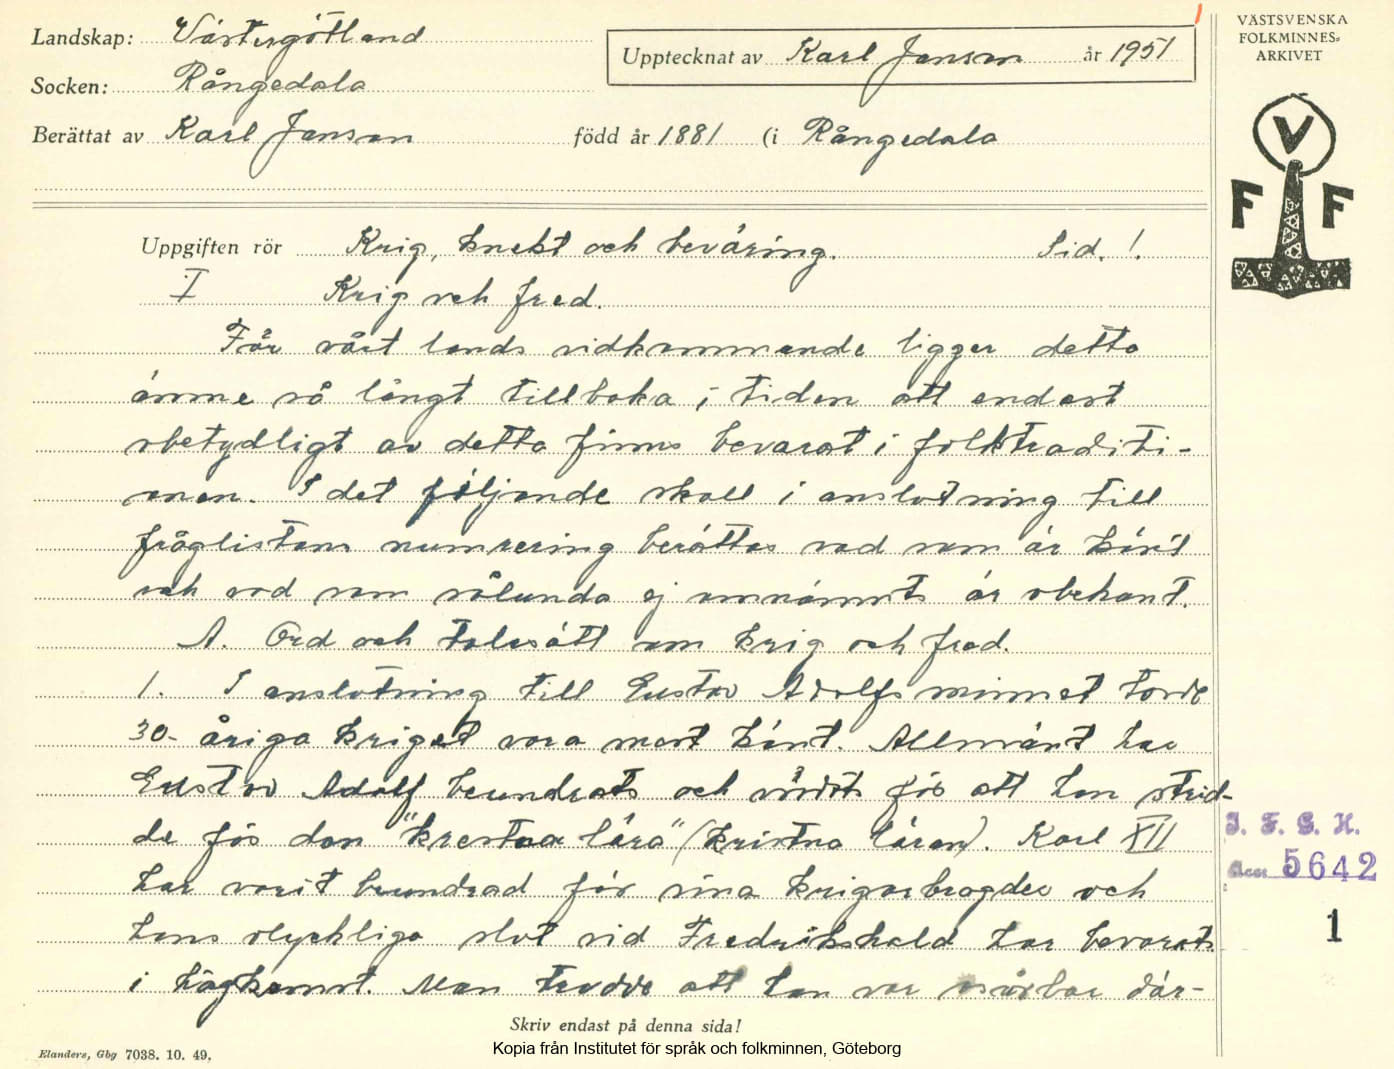 1
VÄSTSVENSKA
FOLKMINNES-
ARKIVET
V
F F
Landskap: Västergötland
Upptecknat av Karl Janson år 1951
Socken: Rångedala
Berättat av Karl Janson född år 1881 (i Rångedala
Uppgiften rör Krig, knekt och beväring. Sid. 1.
I Krig och fred.
För vårt lands vidkommande ligger detta
ämne så långt tillbaka i tiden att endast
obetydligt av detta finns bevarat i folktraditi-
onen. I det följande skall i anslutning till
fråglistans numrering berättas vad som är känt
och vad som sålunda ej omnämnts är obekant.
A. Ord och talesätt om krig och fred.
1. I anslutning till Gustav Adolfsminnet torde
30-åriga kriget vara mest känt. Allmänt har
Gustav Adolf beundrats och vördats för att han strid-
de för dan "krestna lära" (kristna läran). Karl XII
har varit beundrad för sina krigarbragder och
hans olyckliga slut vid Fredrikshald har bevarats
i hågkomst. Man trodde att han var osårbar där-
I. F. G. H.
Acc 5642
1
Skriv endast på denna sida!
Elanders, Gbg 7038. 10. 49.
Kopia från Institutet för språk och folkminnen, Göteborg